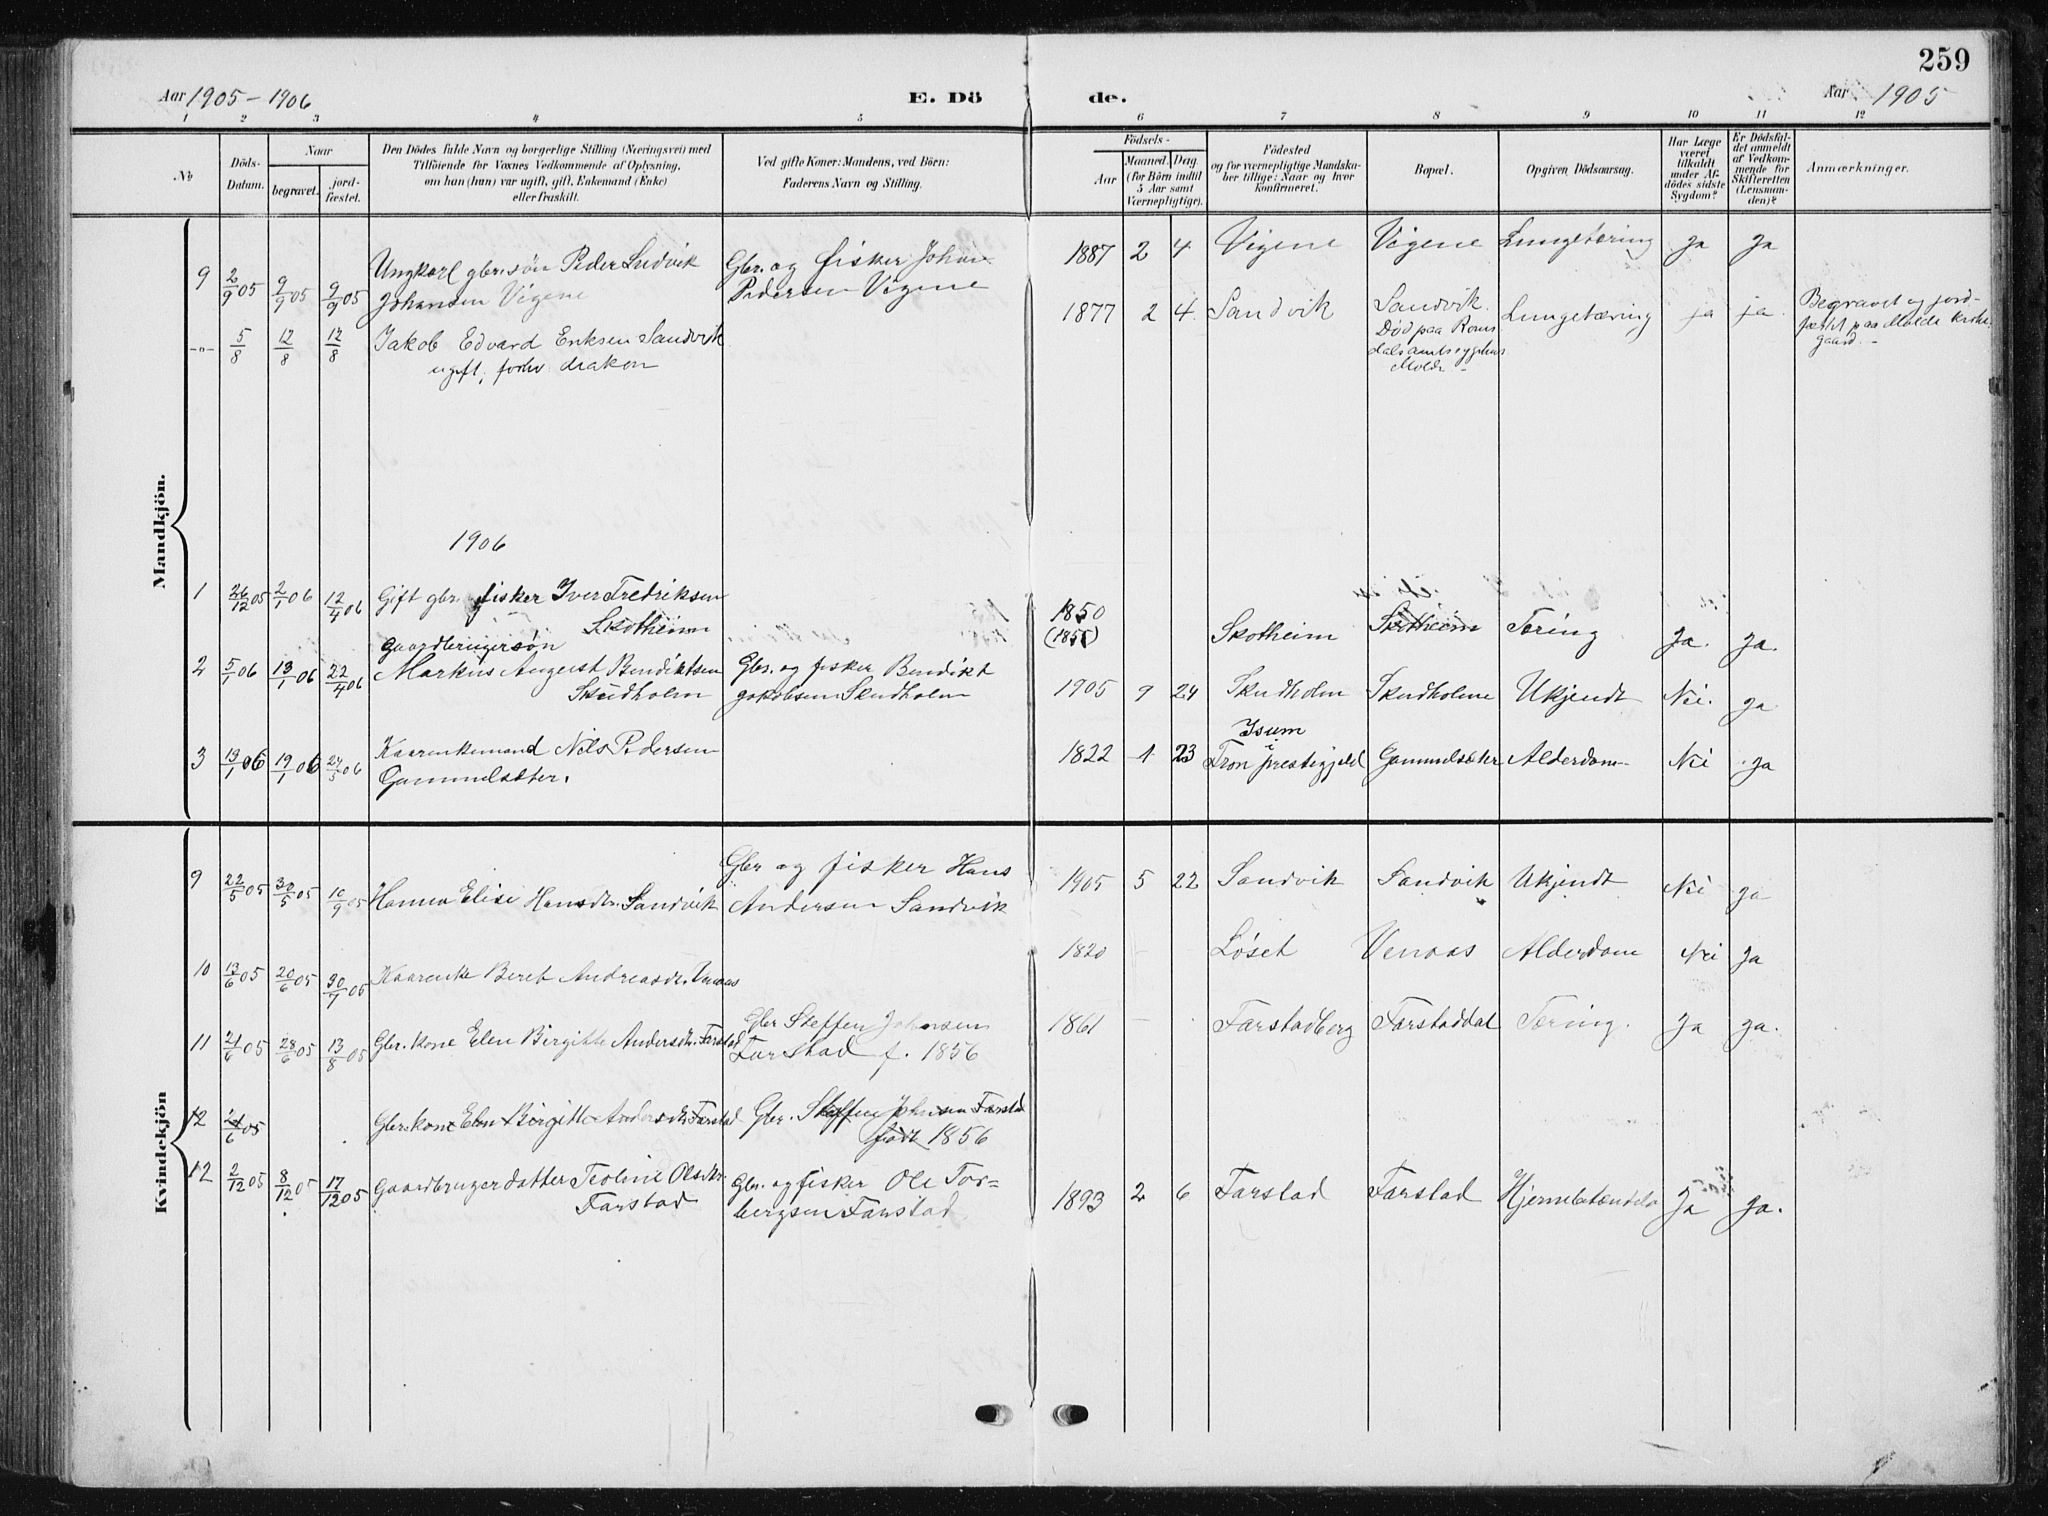 259
Aar 1905 - 1906
E. Dö de.
Aar 1905
1 2 3 4 5 6 7 8 9 10 11 12
№
Döds-
Datum.
Naar
begravet.
jord-
fæstet.
Den Dödes fulde Navn og borgerlige Stilling (Næringsvei) med
Tilföiende for Voxnes Vedkommende af Oplysning,
om han (hun) var ugift, gift, Enkemand (Enke)
eller fraskilt.
Ved gifte Koner: Mandens, ved Börn:
Faderens Navn og Stilling.
Födsels-
Aar
Maaned. Dag.
(for Börn indtil
5 Aar samt
Værnepligtige).
Födested
og for værnepligtige Mandska-
ber tillige: Naar og hvor
konfirmeret.
Bopæl.
Opgiven Dödsaarsag.
Har Læge
været
tilkaldt
under Af-
dödes sidste
Sygdom?
Er Dödsfal-
det anmeldt
af Vedkom-
mende for
Skifteretten
(Lensman-
den)?
Anmærkninger.
Mandkjön.
9 2/9 05 9/9 05 9/9 05 Ungkarl gbr.søn Peder Ludvik
Johansen Vigene
Gbr. og fisker Johan
Pedersen Vigene
1887 2 4 Vigene Vigene Lungetæring Ja Ja
-"- 5/8 12/8 12/8 Jakob Edvard Eriksen Sandvik
ugift, forhv. diakon
1877 2 4 Sandvik Sandvik. Lungetæring ja ja.
Død paa Roms
dals amtssygehus
Molde -
Begravet og jord-
fæstet paa Molde kirke-
gaard. -
1906
1 26/12 05 2/1 06 12/4 06 Gift gbr. fisker Iver Fredriksen
Skotheim
1850
(1855)
Skotheim Skotheim Tæring Ja. Ja.
2 5/1 06 13/1 06 22/4 06 Gaardbrugersøn
Markus August Bendiktsen
Skudholm
Gbr. og fisker Bendikt
Jakobsen Skudholm
1905 9 24 Skudholm Skudholme Ukjendt Nei. Ja
3 13/1 06 19/1 06 24/5 06 Kaarenkemand Nils Pedersen
Gammelsæter.
1822 1 23 Isum
i
Fron prestegjeld Gammelsæter Alderdom- Nei Ja
Kvindekjön
9 22/5 05 30/5 05 10/9 05 Hanna Elise Hansdtr. Sandvik
Gbr og fisker Hans
Andersen Sandvik
1905 5 22 Sandvik Sandvik Ukjendt Nei Ja
10 13/6 05 20/6 05 30/7 05 Kaarenke Beret Andreasdtr. Venaas
1820 - Løset Venaas Alderdom Nei Ja
11 21/6 05 28/6 05 13/8 05 Gbr. kone Elen Birgitte Andersdtr. Farstad
Gbr Steffen Johnsen
Farstad f. 1856
1861 - Farstadberg Farstaddal Tæring. Ja Ja.
12 21/6 05 Gbr. kone Elen Birgitte Andersdtr. Farstad Gbr. Steffen Johnsen Farstad
født 1856
12 2/12 05 8/12 05 17/12 05 Gaardbrugerdatter Teoline Olsdtr.
Farstad
Gbr. og fisker Ole Tor-
bergsen Farstad
1893 2 6 Farstad Farstad Hjernebetændelse Ja Ja.